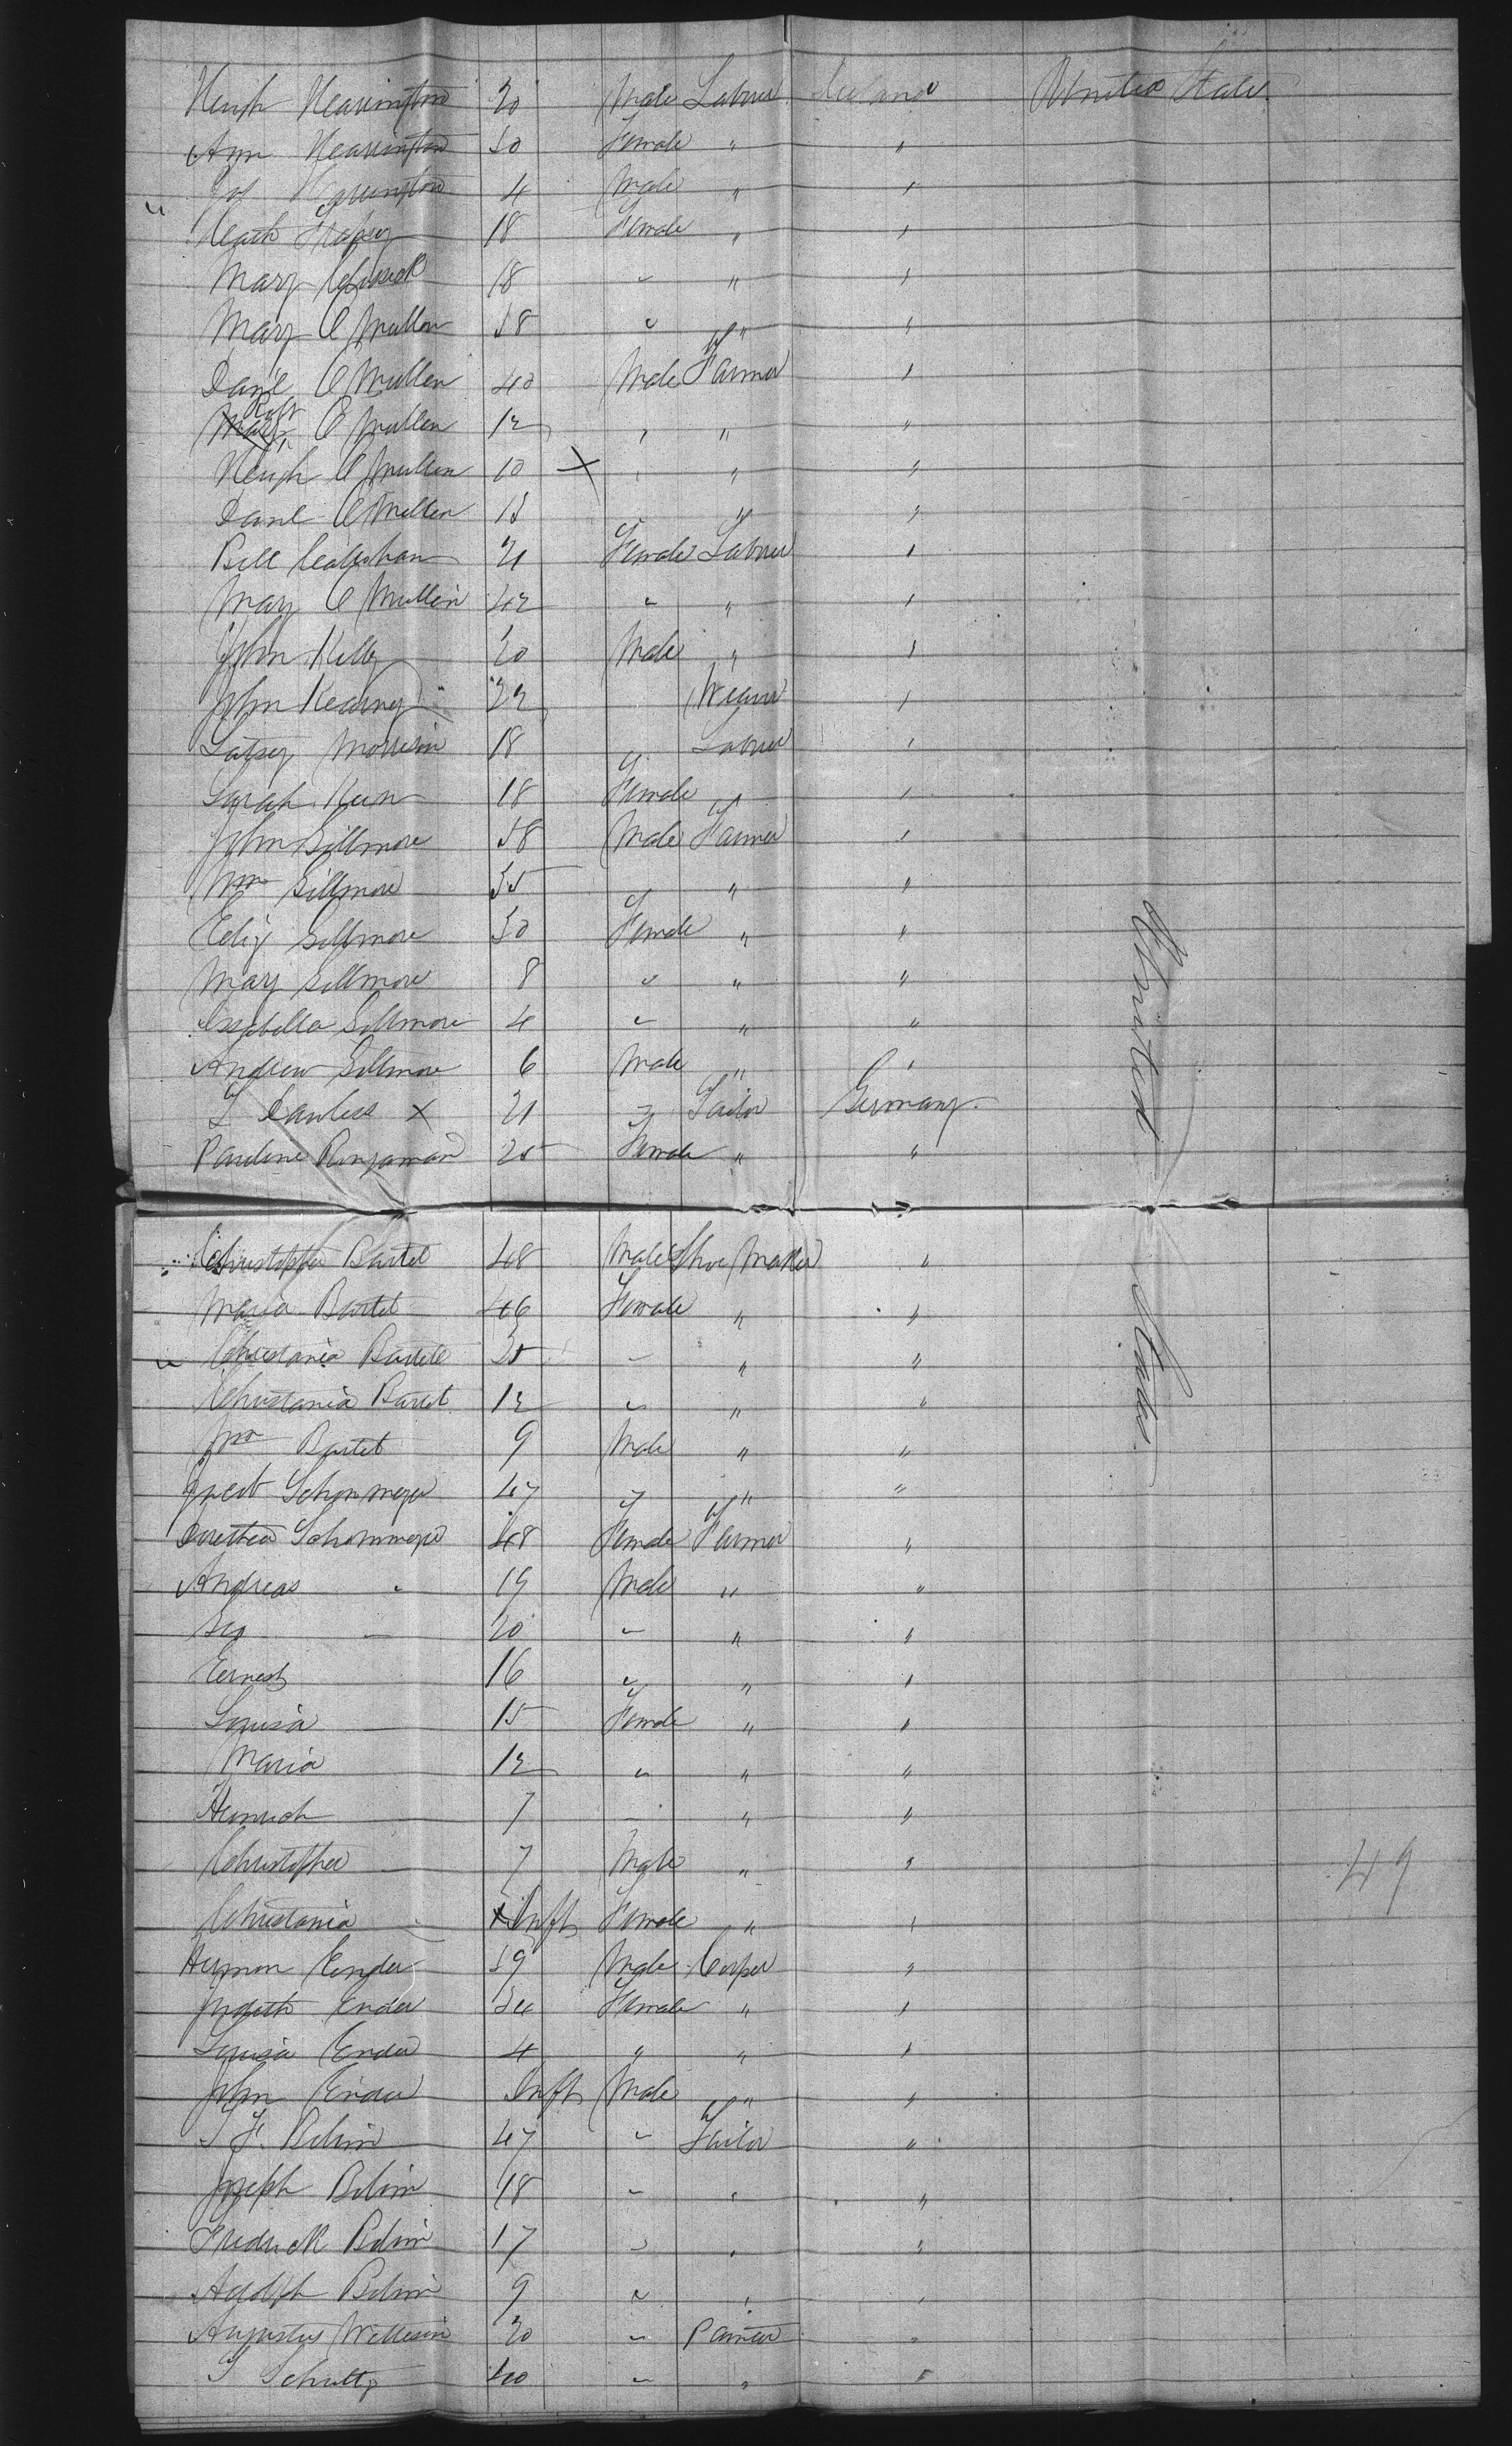 Hugh Hearington 30 Male Labrer Ireland United States
Ann Hearington 30 Female " "
Jos Harrington 4 Male " "
Heath 18 Female " "
Mary Cusick 18 " " "
Mary O Mullen 38 " " "
Danl O Mullen 40 Male Farmer "
Robt O Mullen 12 " " "
Hugh O Mullen 10 × " " "
Danl O Mullen 13 " "
Bell Callishan 21 Female Labrer "
Mary O Mullen 42 " " "
John Kelly 20 Male " "
John Kearney 22 Weaver "
Morrison 18 Labrer "
Sarah Kern 18 Female " "
John Gillmore 38 Male Farmer "
Wm Gillmore 35 " "
Eliz Gillmore 30 Female " "
Mary Gillmore 8 " " "
Issabella Gillmore 4 " " "
Andrew Gillmore 6 Male " "
T Lawless × 21 " Tailor Germany
Pauline 25 Female " "
United States
Christopher Bartel 48 Male Shoe Maker "
Maria Bartel 46 Female " "
Christania Bartele 35 " " "
Christania Bartel 12 " " "
Wm Bartel 9 Male " "
Schonmeyer 47 " " "
Dorethea Schonmeyer 48 Female Farmer "
Andreas " 19 Male " "
Geo — 20 " " "
Ernest 16 " " "
Louisa — 15 Female " "
Maria 12 " " "
Heinrich — 7 — " "
Christopher — 7 Male " "
49
Christania - × Inft Female " "
Herman Ender 39 Male Cooper "
Judith Ender 34 Female " "
Louisa Ender 4 " " "
John Ender Inft Male " "
F. Belim 47 " Tailor "
Joseph Belim 18 " " "
Fredrick Belim 17 " " "
Adolph Belim 9 " " "
Augustus Willesin 20 " Painter "
Schultz 40 " " "